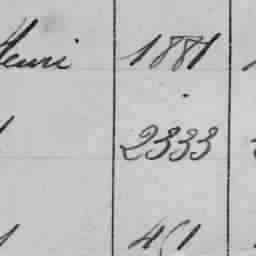 Henri 1881
2333
451